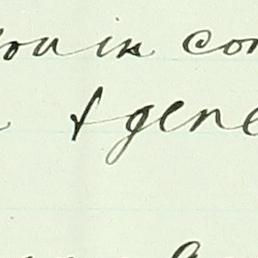 you in con
& gene